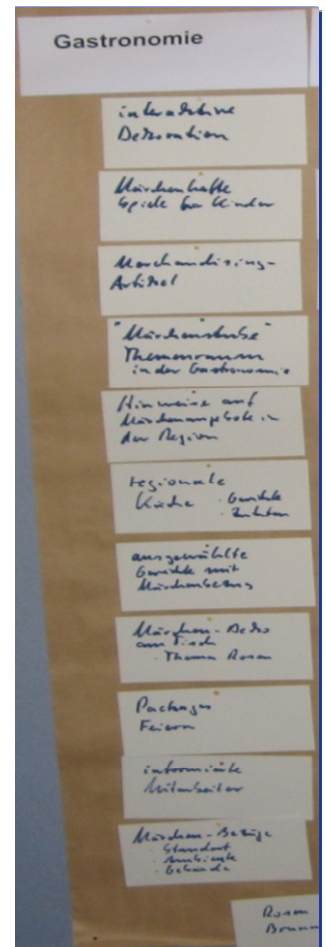 Gastronomie
interaktive
Dekoration
Märchenhafte
Spiele für Kinder
Merchandising-
Artikel
"Märchenstube"
Themenraum
in der Gastronomie
Hinweise auf
Märchenangebote in
der Region
regionale
Küche · Gerichte
· Zutaten
ausgewählte
Gerichte mit
Märchenbezug
Märchen-Deko
am Tisch
· Thema Rosen
Packages
Feiern
informierte
Mitarbeiter
Märchen-Bezüge
· Standort
· Ambiente
· Gebäude
Rosen